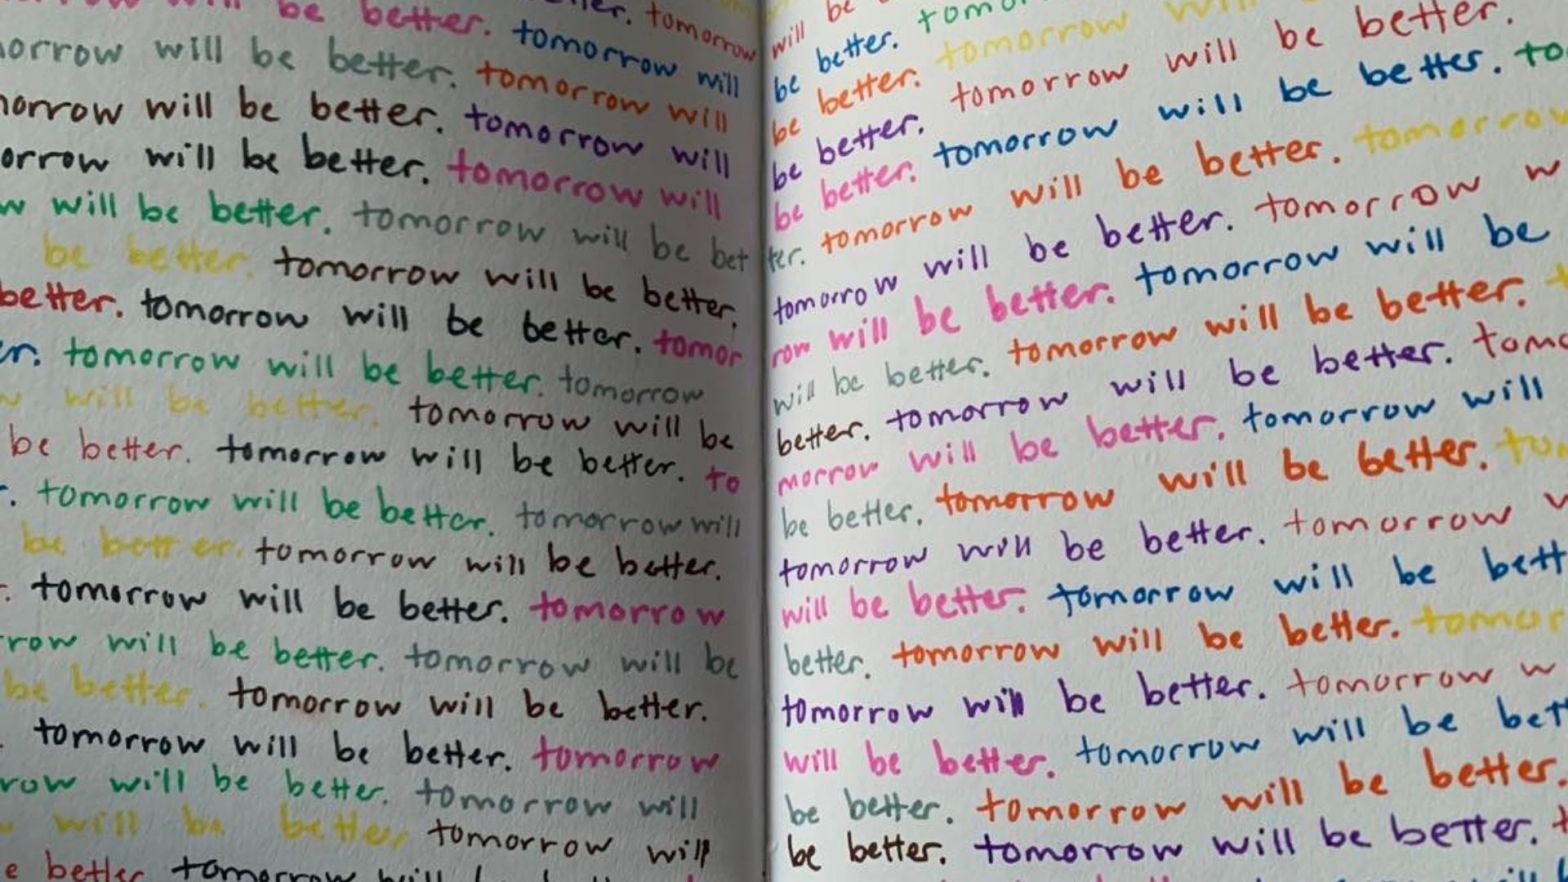 ter. tomorrow will be
will be better. tomorrow will be better. tomo
orrow will be better. tomorrow will be better. tomorrow will
morrow will be better. tomorrow will be better. tomorrow will be better.
orrow will be better. tomorrow will be better. tomorrow will be better. to
w will be better. tomorrow will be bet ter. tomorrow will be better. tomorrow
be better. tomorrow will be better. tomorrow will be better. tomorrow w
better. tomorrow will be better. tomor row will be better. tomorrow will be
er. tomorrow will be better. tomorrow will be better. tomorrow will be better.
w will be better. tomorrow will be better. tomorrow will be better. tomo
be better. tomorrow will be better. to morrow will be better. tomorrow will
. tomorrow will be better. tomorrow will be better. tomorrow will be better. to
be better. tomorrow will be better. tomorrow will be better. tomorrow w
. tomorrow will be better. tomorrow will be better. tomorrow will be bett
row will be better. tomorrow will be better. tomorrow will be better. tomor
be better. tomorrow will be better. tomorrow will be better. tomorrow w
. tomorrow will be better. tomorrow will be better. tomorrow will be bett
row will be better. tomorrow will be better. tomorrow will be better.
will be better. tomorrow will be better. tomorrow will be better. t
e better tomorrow will